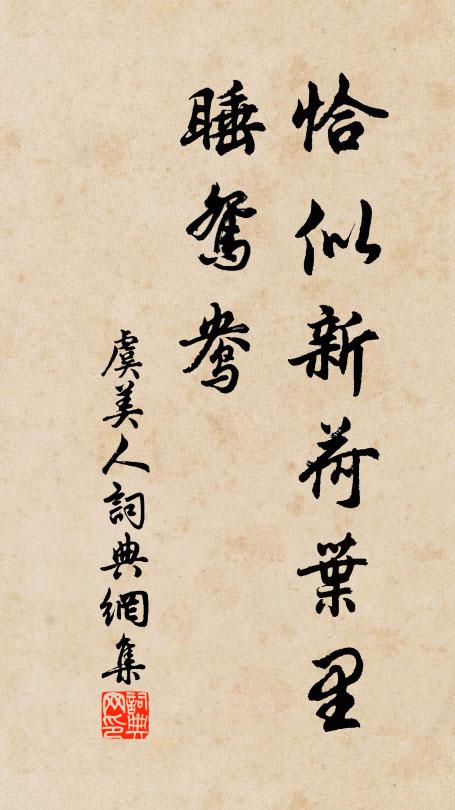 恰似新荷葉里
睡鴛鴦
虞美人詞典網集
詞典网印